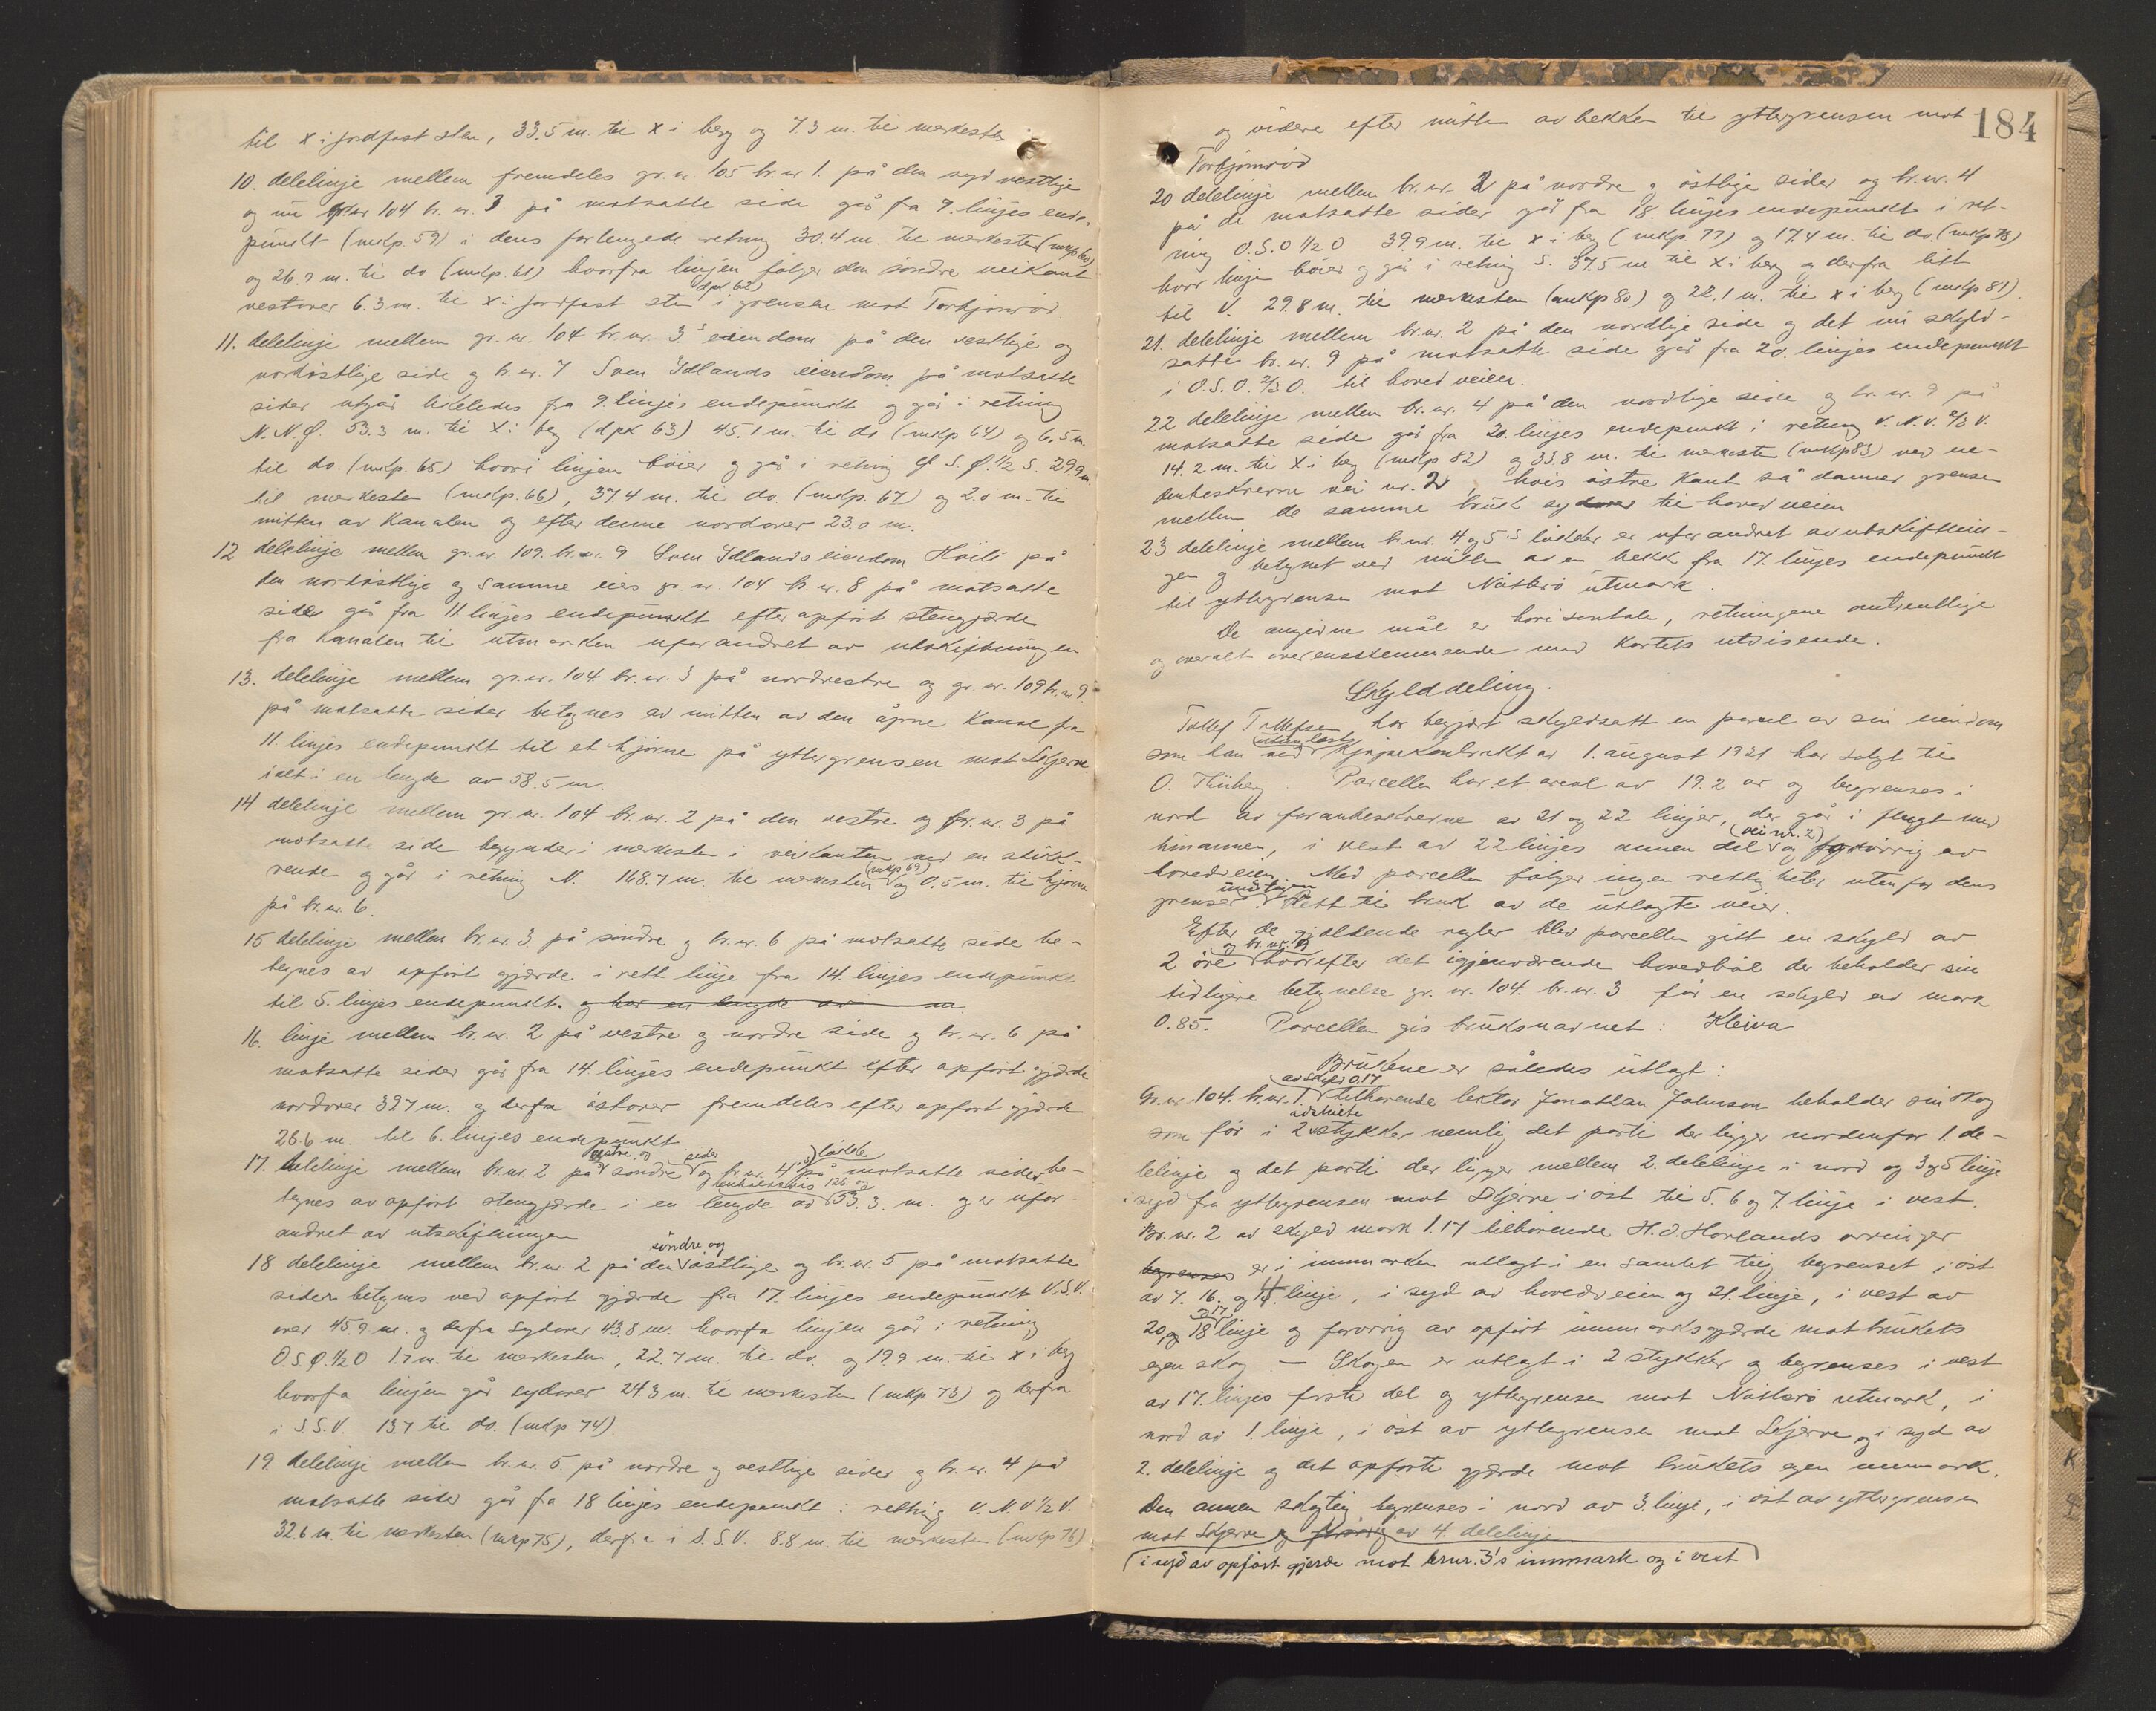 til x i jordfast sten, 33.5 m. til x i berg og 7.3 m. til merkesten
10. delelinje mellem fremdeles gr. nr 105 br. nr 1. på den syd vestlige
og nu gr. nr 104 br. nr. 3 på motsatte side går fra 9. linjes ende-
punkt (mkp. 59) i dens forlengede retning 30.4 m. til merkesten (mkp 60)
og 26.9 m. til do (mkp. 61) hvorfra linjen følger den søndre veikant
vestover 6.3 m. til x i jordfast sten (dpk 62) i grensen mot Torkjønrød.
11. delelinje mellem gr. nr. 104 br. nr. 3's eiendom på den vestlige og
nordøstlige side og br. nr. 7 Sven Ydlands eiendom på motsatte
sider utgår likeledes fra 9. linjes endepunkt og går i retning
N.N.Ø. 53.3 m. til x i berg (dpk 63) 45.1 m. til do (mkp 64) og 6.5 m.
til do. (mkp. 65) hvori linjen bøier og går i retning Ø S. Ø. 1/2 S. 29.9 m.
til merkesten (mkp. 66), 37.4 m. til do. (mkp. 67) og 2.0 m. til
mitten av kanalen og efter denne nordover 23.0 m.
12 delelinje mellem gr. nr. 109. br. nr. 9 Sven Ydlands eiendom Høili på
den nordøstlige og samme eies gr. nr. 104 br. nr. 8 på motsatte
side går fra 11 linjes endepunkt efter opført stengjærde
fra kanalen til utmarken uforandret av utskiftningen
13. delelinje mellem gr. nr. 104 br. nr. 3 på nordvestre og gr. nr. 109 br. nr 9
på motsatte sider betegnes av mitten av den åpne kanal fra
11. linjes endepunkt til et hjørne på yttergrensen mot Skjerve
ialt i en lengde av 58.5 m.
14 delelinje mellem gr. nr. 104 br. nr. 2 på den vestre og br. nr. 3 på
motsatte side begynder i merkesten i veikanten ved en stikk-
rende og går i retning N. 168.7 m. til merkesten (mkp 69) og 0.5 m. til hjørne
på br. nr. 6.
15 delelinje mellem br. nr. 3. på søndre og br. nr. 6 på motsatte side be-
tegnes av opført gjærde i rett linje fra 14. linjes endepunkt
til 5. linjes endepunkt. og har en lengde av m
16. linje mellem br. nr. 2 på vestre og nordre side og br. nr. 6 på
motsatte sider går fra 14 linjes endepunkt efter opført gjærde
nordover 327 m. og derfra østover fremdeles efter opført gjærde
26.6 m. til 6. linjes endepunkt
17. delelinje mellem br. nr 2 på østre og søndre sider og br. nr. 4's løkke på motsatte sider be-
tegnes av opført stengjærde i en lengde av henholdsvis 126 og 53.3. m. og er ufor-
andret av utskiftningen
18 delelinje mellem br. nr. 2 på den søndre og østlige og br. nr. 5 på motsatte
sider betegnes ved opført gjærde fra 17. linjes endepunkt V.S.V.
over 45.9 m. og derfra sydover 43.8 m. hvorfra linjen går i retning
O.S.Ø. 1/2 O 1.7 m. til merkesten, 22.7 m. til do. og 19.9 m. til x i berg
hvorfra linjen går sydover 24.3 m. til merkesten (mkp 73) og derfra
i S.S.V. 13.7 til do. (mkp 74).
19. delelinje mellem br. nr. 5. på nordre og vestlige sider og br. nr. 4 på
motsatte sider går fra 18 linjes endepunkt i retning V. N. V 1/2 V.
32.6 m. til merkesten (mkp 75), derfra i S.S.V. 8.8 m. til merkesten (mkp 76)
184
og videre efter mitten av bekken til yttergrensen mot
Torkjønrød
20 delelinje mellem br. nr. 2 på nordre og østlige sider og br. nr. 4
på de motsatte sider går fra 18. linjes endepunkt i ret-
ning O.S.O 1/2 O 39.9 m. til x i berg (mkp. 77) og 17.4 m. til do. (mkp 78)
hvor linjen bøier og går i retning S. 37.5 m til x i berg og derfra litt
til V. 29.8 m. til merkesten (mkp 80) og 22.1 m. til x i berg (mkp 81).
21. delelinje mellem br. nr. 2 på den nordlige side og det nu skyld-
satte br. nr. 9 på motsatte side går fra 20. linjes endepunkt
i O.S.O. 2/3 O. til hovedveien.
22 delelinje mellem br. nr. 4 på den nordlige side og br. nr. 9 på
motsatte side går fra 20. linjes endepunkt i retning V. N. V. 2/3 V.
14.2 m. til x i berg (mkp 82) og 33.8 m. til merkesten (mkp 83) ved ne-
denbeskrevne vei nr. 2, hvis østre kant så danner grensen
mellem de samme bruk sydover til hovedveien
23 delelinje mellem br. nr. 4 og 5's løkker er uforandret av utskiftnin-
gen og betegnet ved mitten av en bekk fra 17. linjes endepunkt
til yttergrensen mot Natterø utmark.
De angivne mål er horisontale, retningene omtrentlige
og overalt overensstemmende med kartets utvisende.
Skylddeling.
Tollef Tollefsen har begjært skyldsatt en parcel av sin eiendom
som han ved kjøpekontrakt av 1. august 1921 har solgt til
O. Kiiberg. Parcellen har et areal av 19.2 ar og begrenses i
nord av foranbeskrevne av 21 og 22 linjer, der går i flugt med
hinannen, i vest av 22 linjes annen del (vei nr. 2) og forøvrig av
hovedveien. Med parcellen følger ingen rettigheter utenfor dens
grenser undtagen rett til bruk av de utlagte veier.
Efter de gjældende regler blev parcellen gitt en skyld av
2 øre og br. nr. 9 hvorefter det igjenværende hovedbøl der beholder sin
tidligere betegnelse gr. nr. 104. br. nr. 3 får en skyld av mark
0.85. Parcellen gis bruksnavnet: Kleiva
Brukene er således utlagt:
Gr. nr. 104. br. nr. 1. av skyld 0.17 tilhørende lektor Jonathan Johnson beholder sin skog
som før i 2 adskilte stykker nemlig det parti der ligger nordenfor 1. de-
lelinje og det parti der ligger mellem 2. delelinje i nord og 3 og 5 linje
i syd fra yttergrensen mot Skjerve i øst til 5. 6 og 7. linje i vest.
Br. nr. 2 av skyld mark 1.17 tilhørende H. O. Hovlands arvinger
begrenses er i innmarken utlagt i en samlet teig begrenset i øst
av 7. 16. og 14. linje, i syd av hovedveien og 21. linje, i vest av
20, og 18 og 17 linje og forøvrig av opført innmarksgjærde mot brukets
egen skog. — Skogen er utlagt i 2 stykker og begrenses i vest
av 17. linjes første del og yttergrensen mot Natterø utmark, i
nord av 1. linje, i øst av yttergrensen mot Skjerve og i syd av
2. delelinje og det opførte gjærde mot brukets egen innmark.
Den annen skogteig begrenses i nord av 3. linje, i øst av yttergrensen
mot Skjerve og forøvrig av 4. delelinje
i syd av opført gjerde mot brnr. 3's innmark og i vest